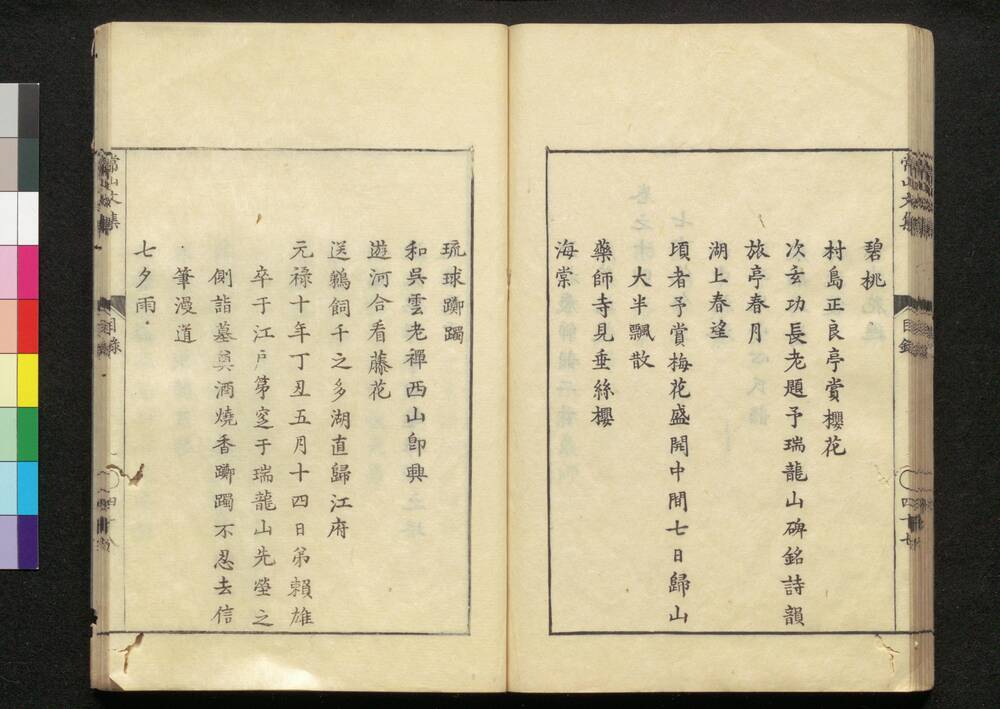 碧桃
村島正良亭賞櫻花
次玄功長老題予瑞龍山碑銘詩韻
旅亭春月
湖上春望
頃者予賞梅花盛開中間七日歸山
大半飄散
藥師寺見垂絲櫻
海棠
常山文集
目錄
琉球躑躅
和呉雲老禪西山卽興
遊河合看藤花
送鵜飼千之多湖直歸江府
元祿十年丁丑五月十四日弟賴雄
卒于江戶第窆于瑞龍山先塋之
側詣墓奠酒燒香躑躅不忍去信
筆漫道
七夕雨
常山文集
目錄